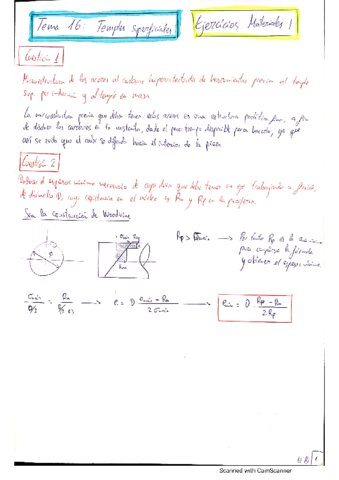 Tema 16: Temples Superficiales
Ejercicios Materiales I
Cuestión 1
Microestructura de los aceros al carbono hipoeutectoides de tratamientos previos al temple
sup. por inducción y al temple en masa.
La microestructura previa que deben tener estos aceros es una estructura perlítica fina, a fin
de disolver los carburos en la austenita, dado el poco tiempo disponible para hacerlo, ya que
así se evita que el calor se difunda hacia el interior de la pieza.
Cuestión 2
Obtener el espesor mínimo necesario de capa dura que debe tener un eje trabajando a flexión,
de diámetro D, cuya resistencia en el núcleo es Rn y Rp en la periferia.
Sea la construcción de Woodvine
Rp > σmáx → Por tanto Rp es la
para la fórmula
y obtener el espesor mínimo.
e = D σmáx - Rn / 2 σmáx
emín = D Rp - Rn / 2 Rp
Scanned with CamScanner